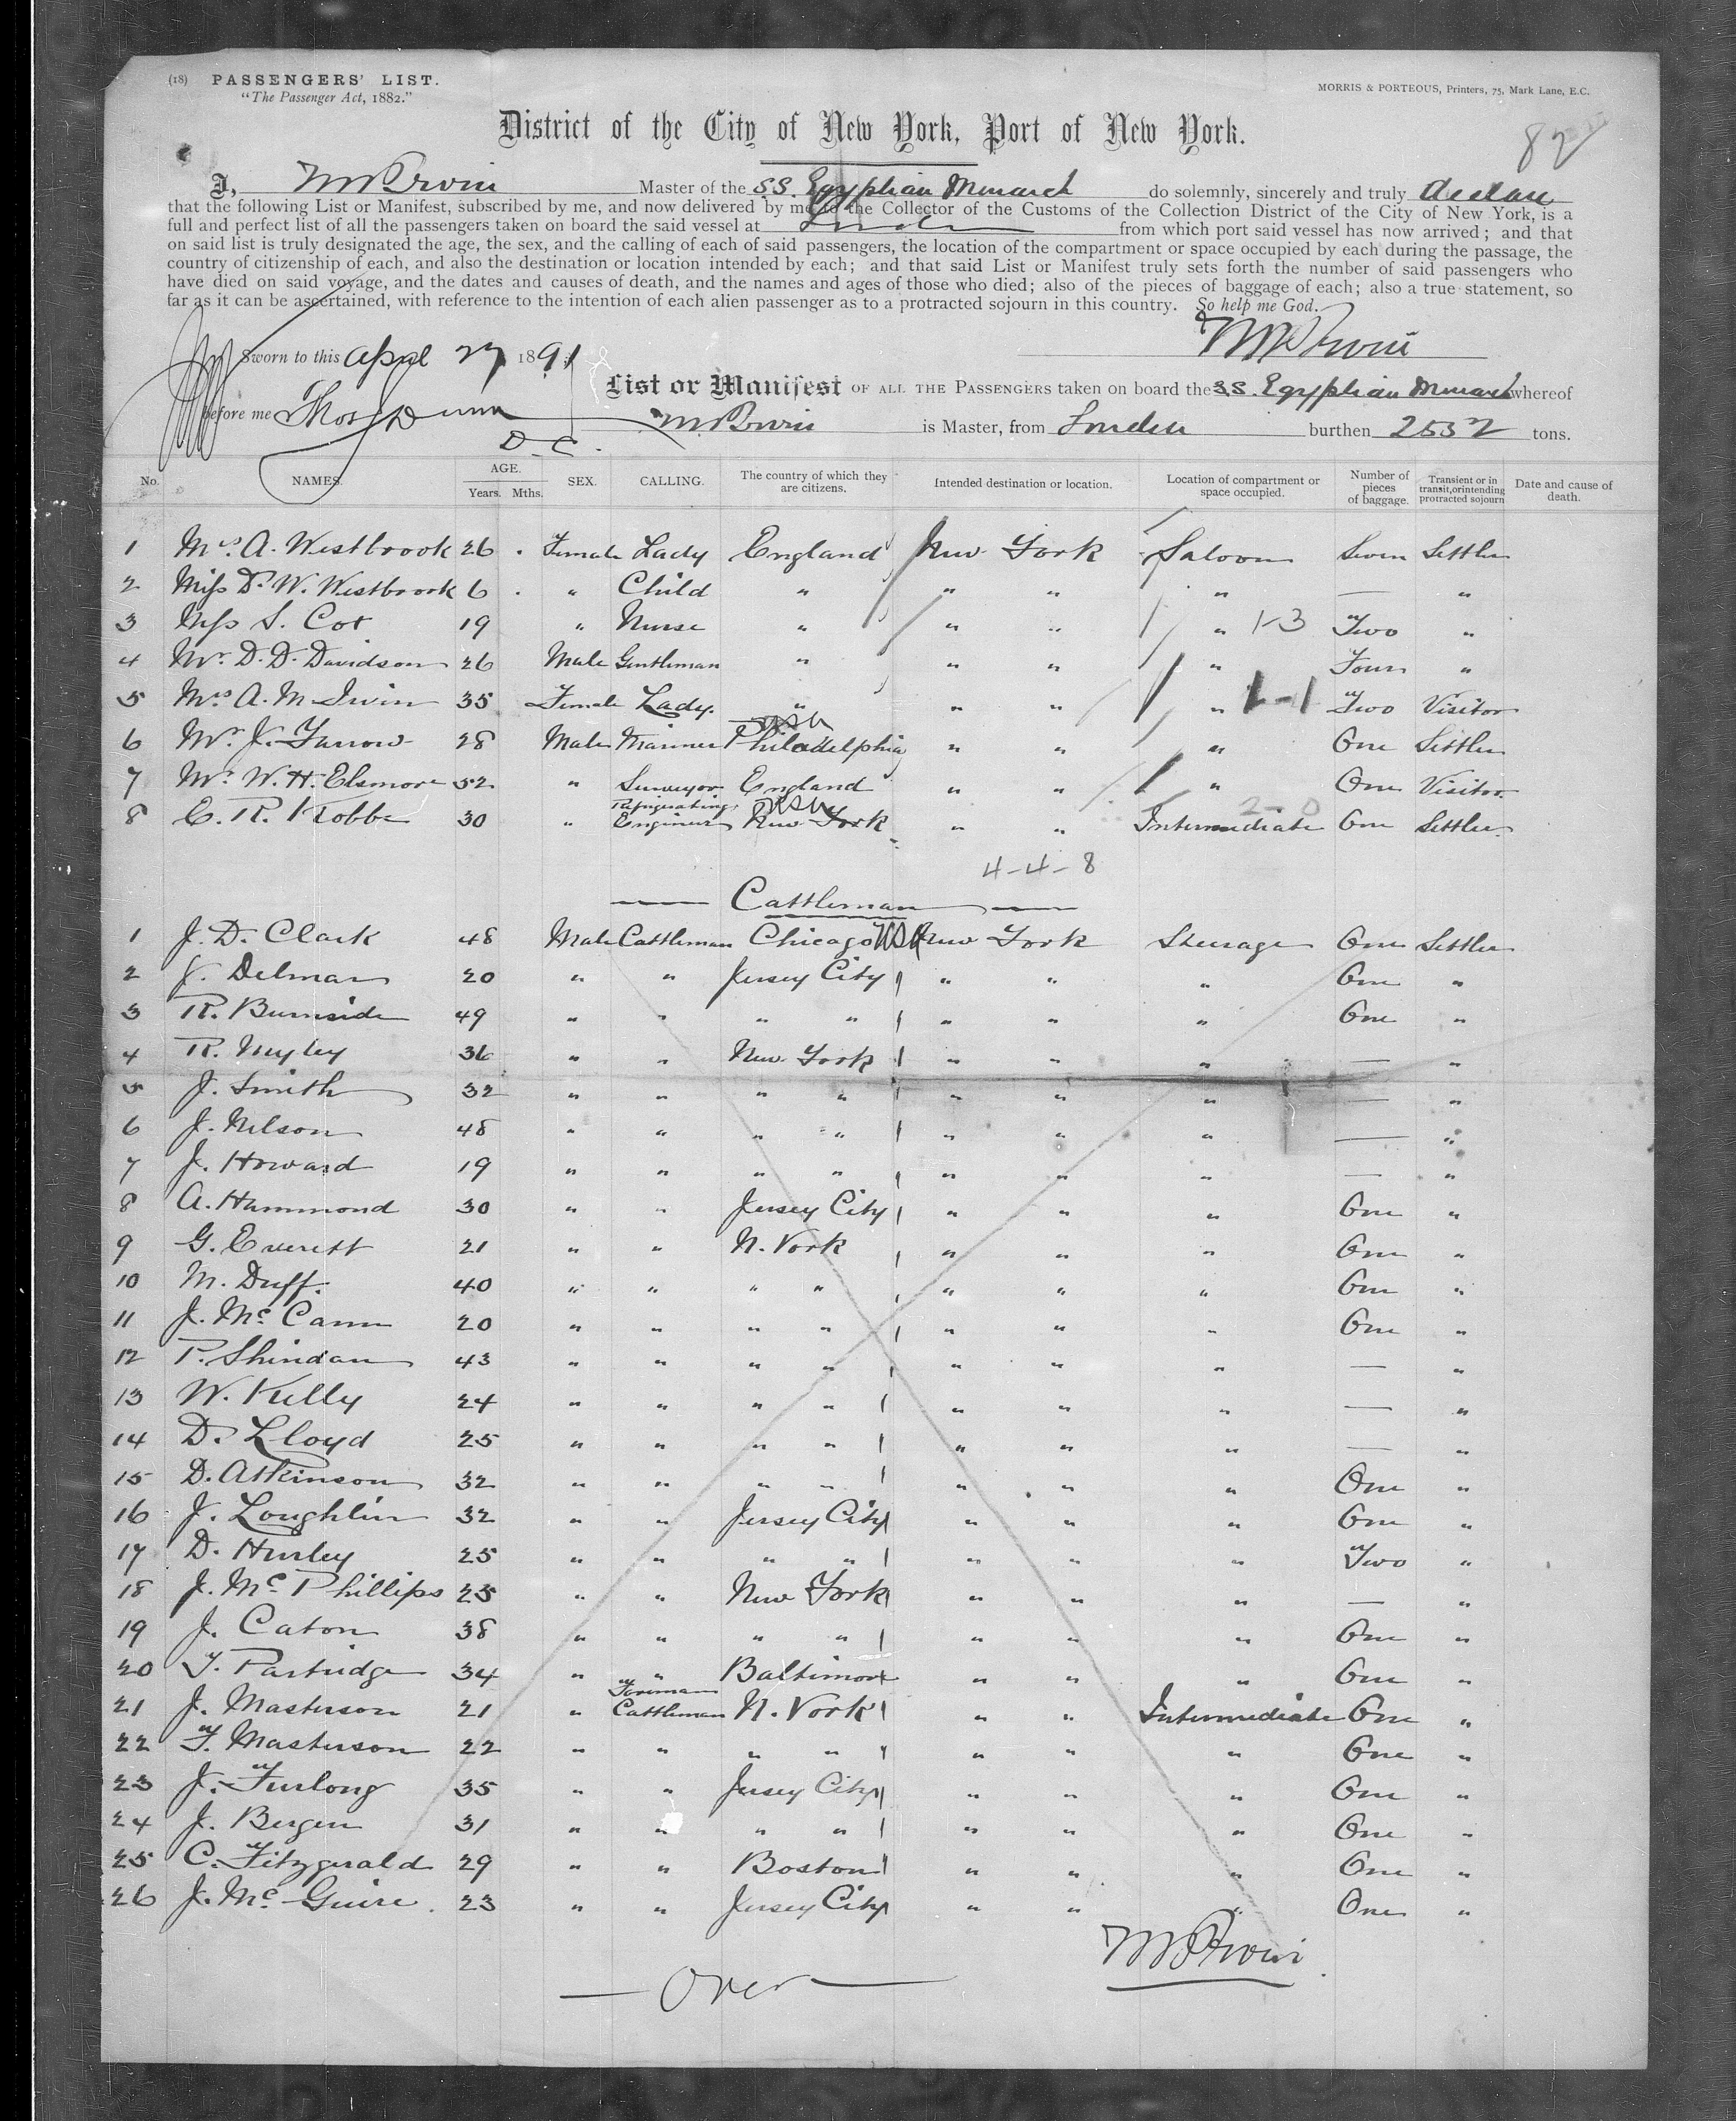 (18) PASSENGERS' LIST.
"The Passenger Act, 1882."
MORRIS & PORTEOUS, Printers, 75, Mark Lane, E.C.
District of the City of New York, Port of New York.
82
I, Irwin Master of the S.S. Egyptian Monarch do solemnly, sincerely and truly declare
that the following List or Manifest, subscribed by me, and now delivered by me to the Collector of the Customs of the Collection District of the City of New York, is a
full and perfect list of all the passengers taken on board the said vessel at London from which port said vessel has now arrived; and that
on said list is truly designated the age, the sex, and the calling of each of said passengers, the location of the compartment or space occupied by each during the passage, the
country of citizenship of each, and also the destination or location intended by each; and that said List or Manifest truly sets forth the number of said passengers who
have died on said voyage, and the dates and causes of death, and the names and ages of those who died; also of the pieces of baggage of each; also a true statement, so
far as it can be ascertained, with reference to the intention of each alien passenger as to a protracted sojourn in this country. So help me God.
Irwin
Sworn to this April 27 1891
List or Manifest OF ALL THE PASSENGERS taken on board the S.S. Egyptian Monarch whereof
before me Thos Dunn
D.C.
Irwin is Master, from London burthen 2532 tons.
No. NAMES. AGE. Years. Mths. SEX. CALLING. The country of which they are citizens. Intended destination or location. Location of compartment or space occupied. Number of pieces of baggage. Transient or in transit, or intending protracted sojourn Date and cause of death.
1 Mrs. A. Westbrook 26 Female Lady England New York Saloon Seven Settler
2 Miss D. W. Westbrook 6 " Child " " " " — "
3 Miss S. Cox 19 " Nurse " " " " 1-3 Two "
4 Mr. D. D. Davidson 26 Male Gentleman " " " " Four "
5 Mrs A. M Irwin 35 Female Lady. " " " " 1-1 Two Visitor
6 Mr. J. Farrow 28 Male Mariner USA Philadelphia " " " One Settler
7 Mr. W. H. Elsmore 52 " Surveyor England " " " One Visitor
8 C. R. Kobbe 30 " Refrigerating Engineer USA New York " " 2-0 Intermediate One Settler
4-4-8
— Cattleman —
1 J. D. Clark 48 Male Cattleman Chicago USA New York Steerage One Settler
2 J. Delman 20 " " Jersey City " " " One "
3 R. Burnside 49 " " " " " " " One "
4 R. 36 " " New York " " " — "
5 J. Smith 32 " " " " " " " — "
6 J. Nelson 48 " " " " " " " — "
7 J. Howard 19 " " " " " " " — "
8 A. Hammond 30 " " Jersey City " " " One "
9 G. Everett 21 " " N. York " " " One "
10 M. Duff. 40 " " " " " " " One "
11 J. Mc Cann 20 " " " " " " " One "
12 P. Shindan 43 " " " " " " " — "
13 W. Kelly 24 " " " " " " " — "
14 D. Lloyd 25 " " " " " " " — "
15 D. Atkinson 32 " " " " " " " One "
16 J. Loughlin 32 " " Jersey City " " " One "
17 D. Hurley 25 " " " " " " " Two "
18 J. Mc Phillips 25 " " New York " " " — "
19 J. Caton 38 " " " " " " " One "
20 T. Partridge 34 " " Baltimore " " " One "
21 J. Masterson 21 " Foreman Cattleman N. York " " Intermediate One "
22 F. Masterson 22 " " " " " " " One "
23 J. Furlong 35 " " Jersey City " " " One "
24 J. Bergen 31 " " " " " " " One "
25 C. Fitzgerald 29 " " Boston " " " One "
26 J. Mc Guire 23 " " Jersey City " " " One "
Irwin
— Over —